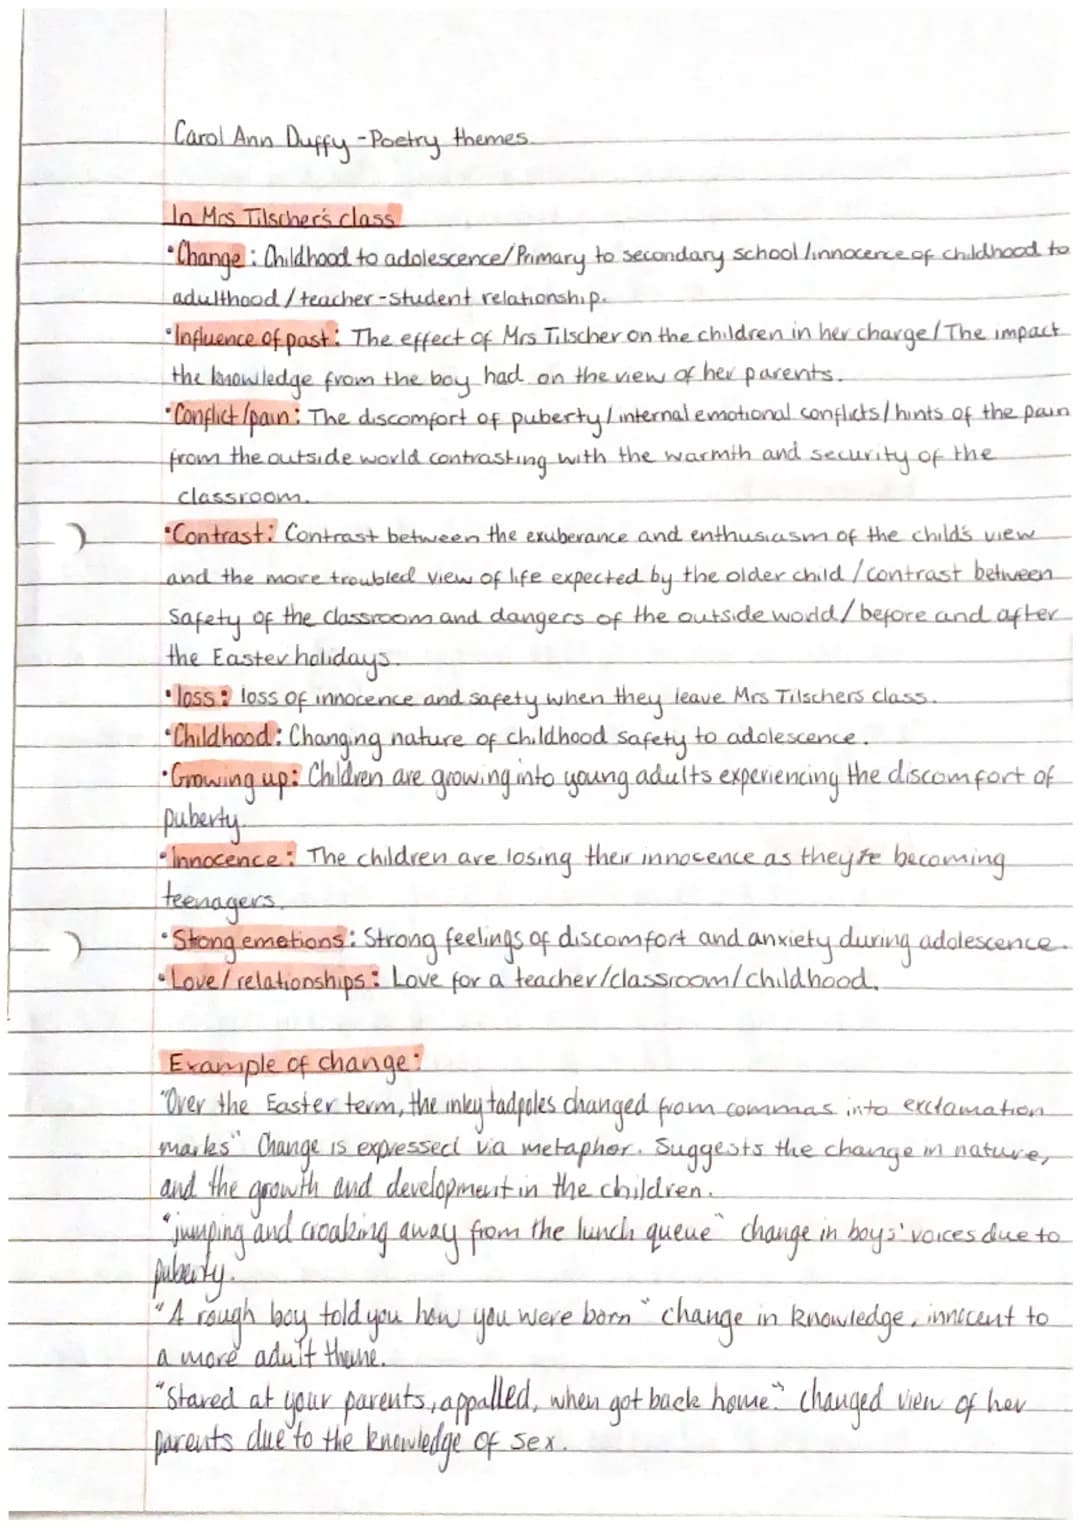 Carol Ann Duffy - Poetry themes.
In Mrs Tilscher's class
•Change: Childhood to adolescence/Primary to secondary school/innocence of childhood to
adulthood/teacher-student relationship.
•Influence of past: The effect of Mrs Tilscher on the children in her charge/The impact
the knowledge from the boy had on the view of her parents.
•Conflict/pain: The discomfort of puberty/internal emotional conflicts/hints of the pain
from the outside world contrasting with the warmth and security of the
classroom.
•Contrast: Contrast between the exuberance and enthusiasm of the child's view
and the more troubled view of life expected by the older child/contrast between
Safety of the classroom and dangers of the outside world/before and after
the Easter holidays.
•loss: loss of innocence and safety when they leave Mrs Tilschers class.
•Childhood: Changing nature of childhood safety to adolescence.
•Growing up: Children are growing into young adults experiencing the discomfort of
puberty.
•Innocence: The children are losing their innocence as they're becoming
teenagers.
•Stong emotions: Strong feelings of discomfort and anxiety during adolescence.
•Love/relationships: Love for a teacher/classroom/childhood.
Example of change:
"Over the Easter term, the inky tadpoles changed from commas into exclamation
marks" Change is expressed via metaphor. Suggests the change in nature,
and the growth and development in the children.
"jumping and croaking away from the lunch queue" change in boys' voices due to
puberty.
"A rough boy told you how you were born" change in knowledge, innocent to
a more adult theme.
"Stared at your parents, appalled, when got back home." changed view of her
parents due to the knowledge of sex.